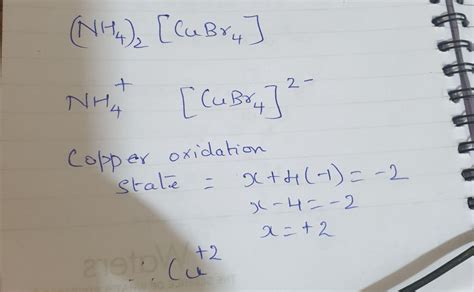 (NH₄)₂ [CuBr₄]
NH₄⁺ [CuBr₄]²⁻
Copper oxidation
state = x+4(-1) = -2
x-4 = -2
x = +2
∴ Cu⁺²